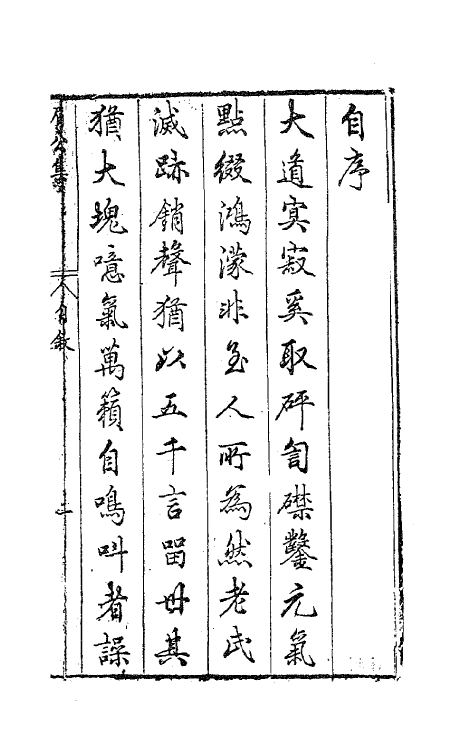 自序
大道寞寂奚取砰訇磔鑿元氣
點綴鴻濛非至人所為然老氏
滅跡銷聲猶以五千言留毋其
猶大塊噫氣萬籟自鳴叫者譟
自敘